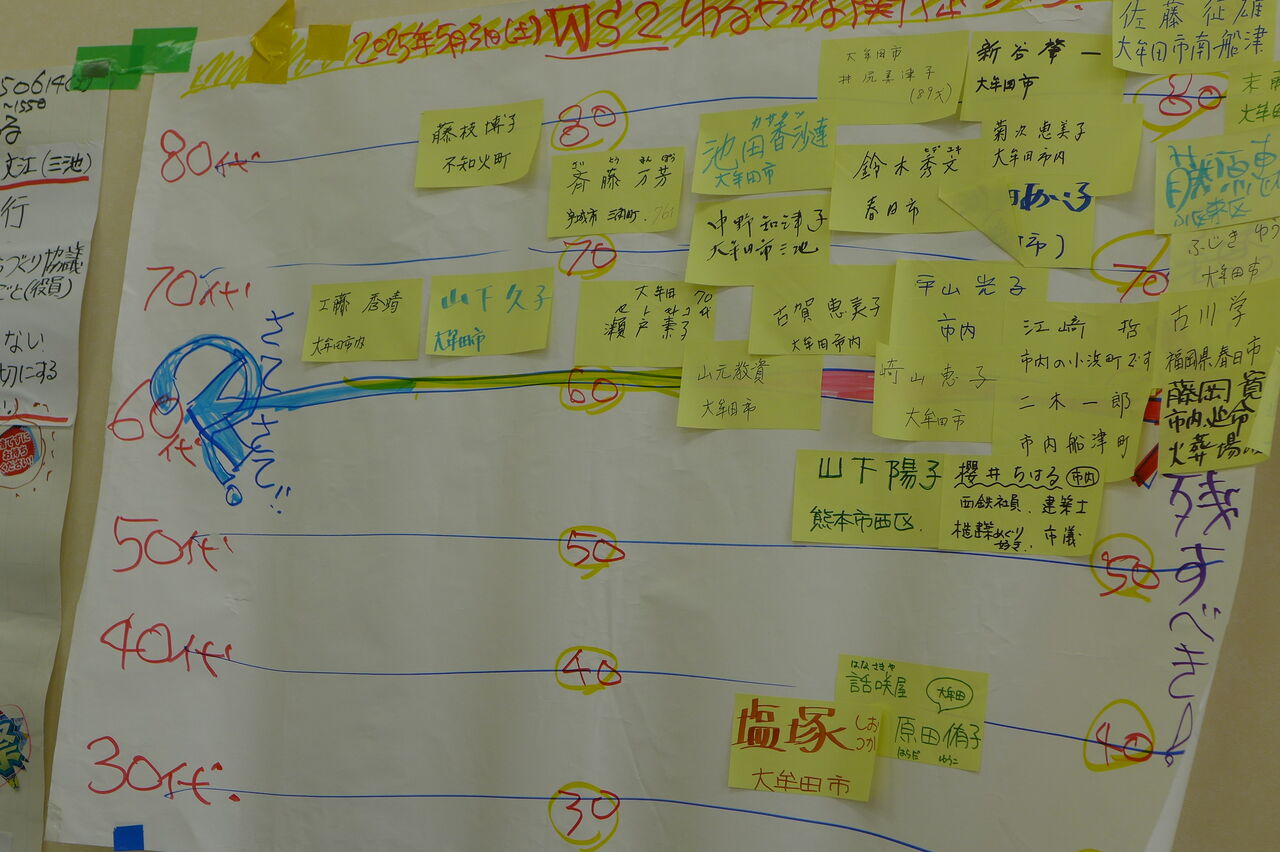 2025年5月3日(土) WS2 ゆるやかな関係
80代
80
80
70代
70
70
60代
60
50代
50
50
40代
40
40
30代
30
さてさて!!
残すべき
藤枝博子
不知火町
斉藤万芳
宇城市 三角町
池田香沙達
大牟田市
中野知津子
大牟田市三池
大牟田市
井尻美津子
(89才)
新谷肇一
大牟田市
佐藤征雄
大牟田市南船津
鈴木秀文
春日市
菊次恵美子
大牟田市内
ふじき ゆう
大牟田市
工藤香晴
大牟田市内
山下久子
大牟田市
大牟田 70代
セトモトコ
瀬戸素子
古賀恵美子
大牟田市内
平山光子
市内
江﨑哲
市内の小浜町です
古川学
福岡県春日市
山元敬資
大牟田市
崎山恵子
大牟田市
二木一郎
市内船津町
藤岡寛
市内延命
火葬場
山下陽子
熊本市西区
櫻井ちはる 市内
西鉄社員、建築士
建築めぐり好き、市議
はなさきや
話咲屋
大牟田
塩塚
しおつか
大牟田市
原田侑子
はらだ ゆうこ
50614(土)
~1550
文江(三池)
行
づくり協議
ごと(役員)
ない
切にする
捨てずに
お持ち
ください!
祭